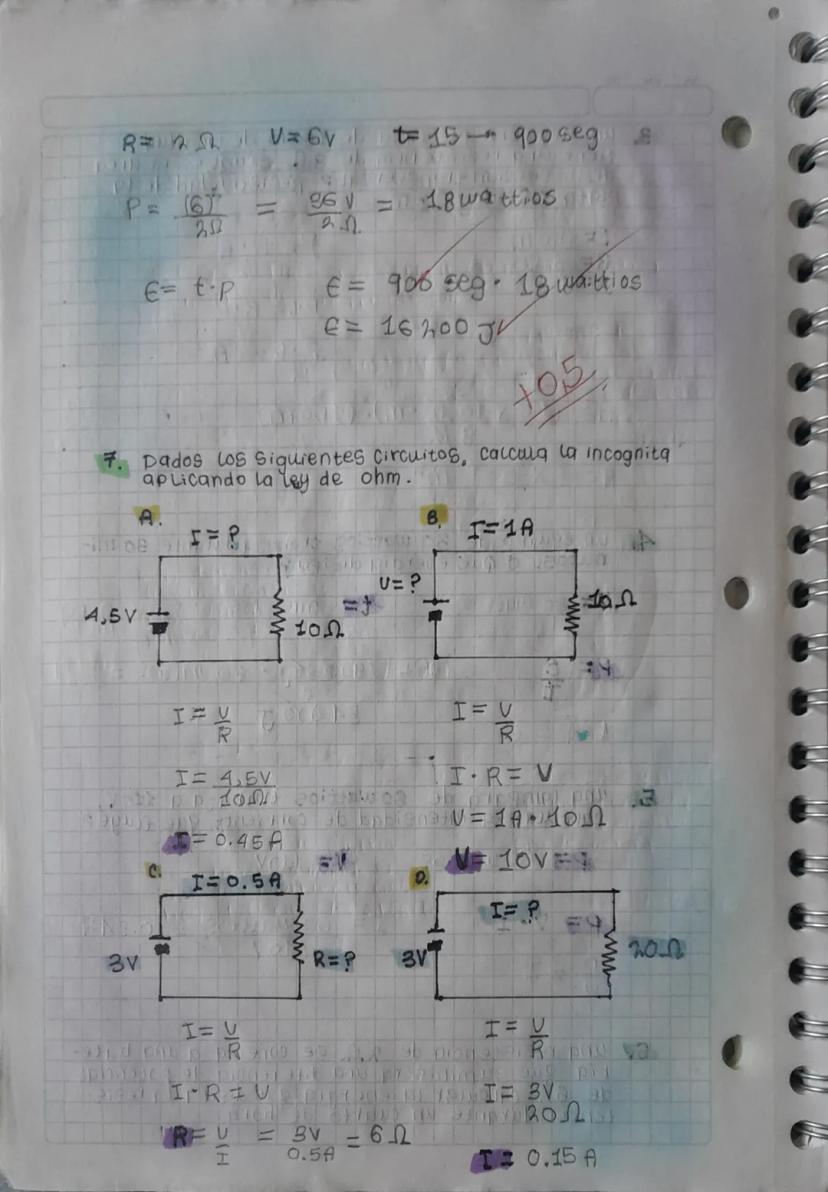 R = 2 Ω V = 6V t = 15 → 900 seg
P = (6)² / 2Ω = 36 V / 2 Ω = 18 wattios
E = t·P E = 900 seg · 18 wattios
E = 16200 J
+0,5
7. Dados los siguientes circuitos, calcula la incognita
aplicando la ley de ohm.
A. B.
I = ? I = 1A
4,5V 10Ω V = ? 10Ω
I = V / R I = V / R
I = 4,5V / 10Ω I · R = V
I = 0.45 A V = 1A · 10Ω
V = 10V
C. D.
I = 0.5A I = ?
3V R = ? 3V 20Ω
I = V / R I = V / R
I · R = V I = 3V / 20Ω
R = V / I = 3V / 0.5A = 6Ω I = 0.15 A